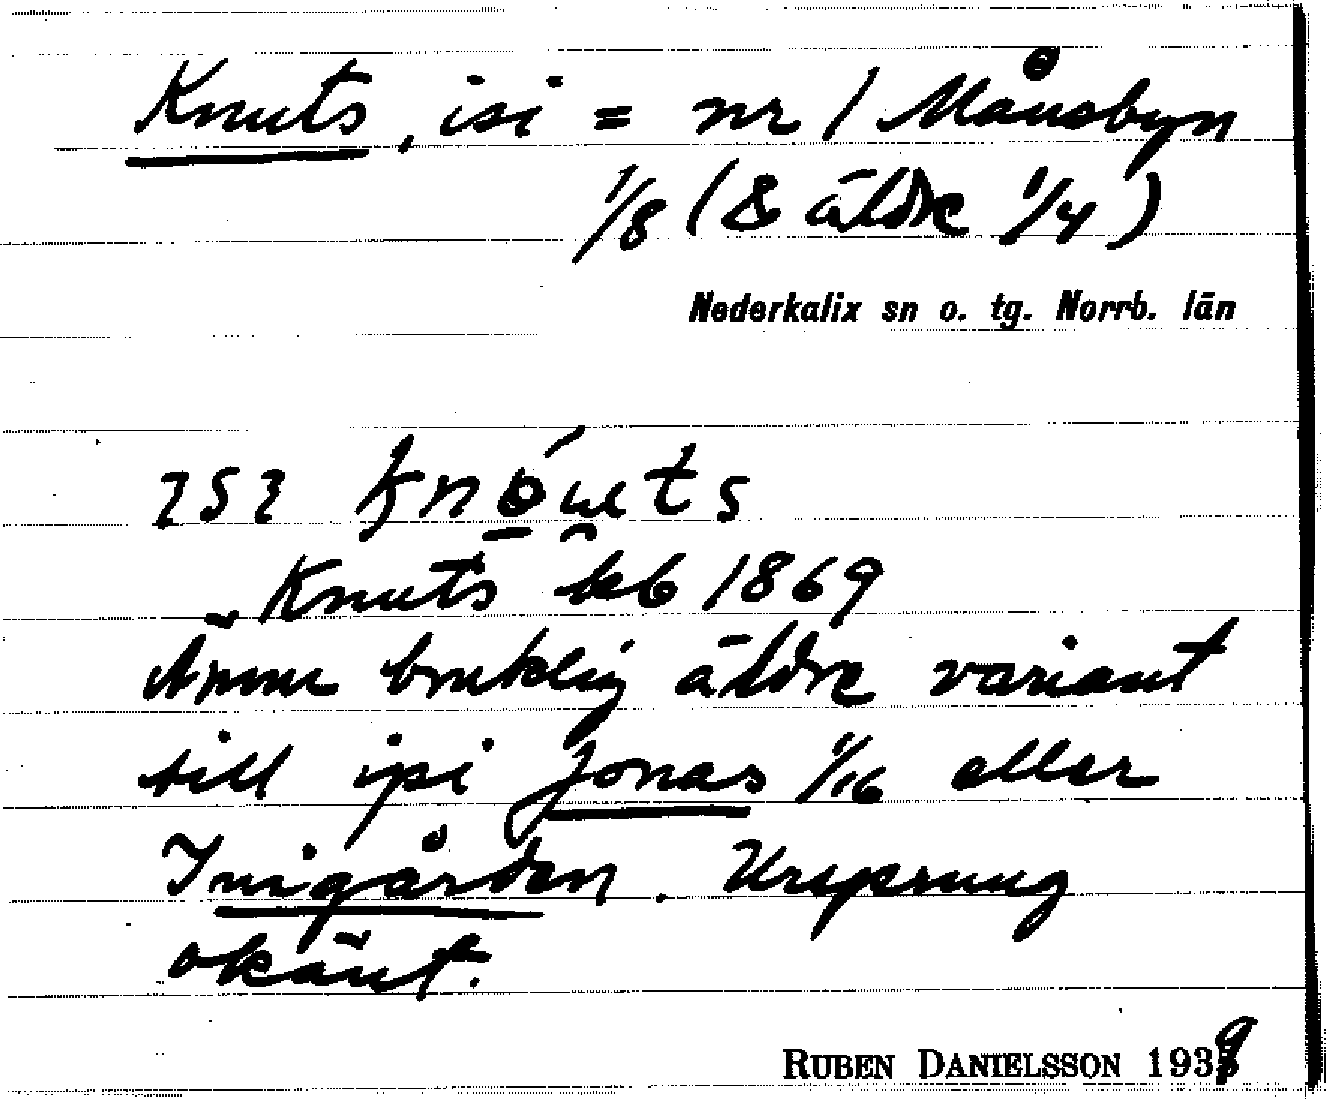 Knuts, isi = nr 1 Månsbyn
1/8 (& äldre 1/4)
Nederkalix sn o. tg. Norrb. län
252 knöuts
Knuts kb 1869
Ännu bruklig äldre variant
till ipi Jonas 1/16 eller
Inigården. Ursprung
okänt.
RUBEN DANIELSSON 1939